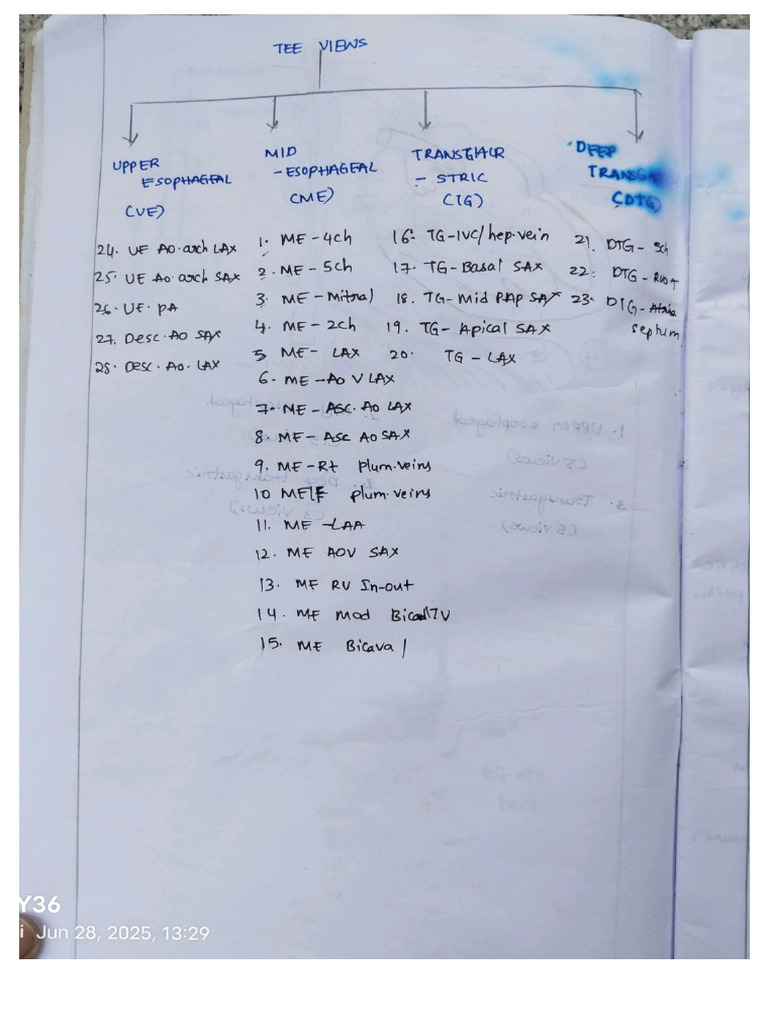 TEE VIEWS
UPPER
ESOPHAGEAL
(UE)
24. UE AO.arch LAX
25. UE AO.arch SAX
26. UE. PA
27. Desc.AO SAX
28. Desc.AO.LAX
MID
-ESOPHAGEAL
(ME)
1. ME-4ch
2. ME-5ch
3. ME-Mitral
4. ME-2ch
5 ME- LAX
6. ME-AO V LAX
7. ME-ASC.AO LAX
8. ME-ASC AO SAX
9. ME-Rt plum.veins
10 ME plum.veins
11. ME-LAA
12. ME AOV SAX
13. ME RV In-out
14. ME Mod TV
15. ME Bicaval
TRANSGA
- STRIC
(TG)
16. TG-IVC/hep.vein
17. TG-Basal SAX
18. TG-Mid PAP SAX
19. TG-Apical SAX
20. TG-LAX
DEEP
TRANSGA
(DTG)
21. DTG-5ch
22. DTG-RVOT
23. DTG-Atria
septum
1. UPPER esophageal
(5 views)
3. Transgastric
(5 views)
Y36
Jun 28, 2025, 13:29